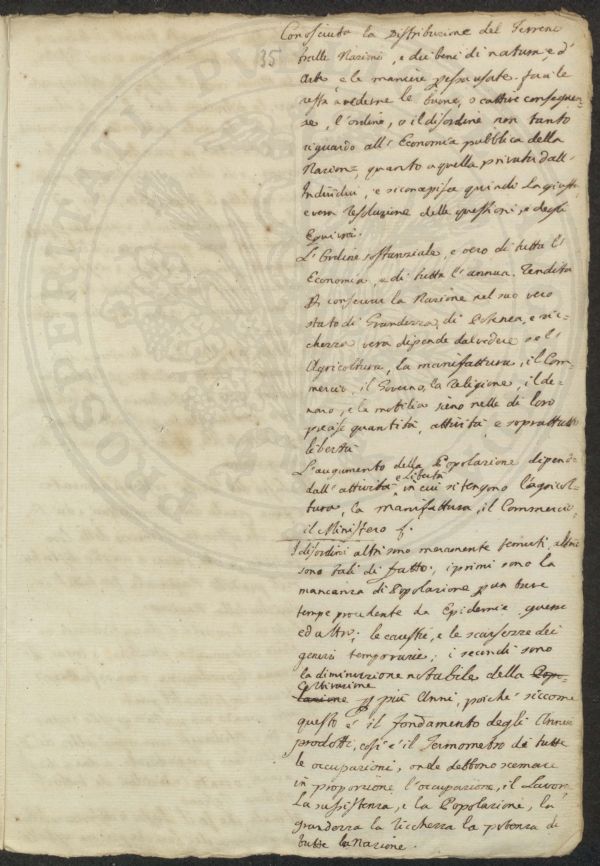 35
Conosciuta la Distribuzione del Terreno
tralle Nazioni, e dei beni di natura, e d'
Arte e le maniere più usate. facile
resta a vederne le buone, o cattive conseguen-
ze, l'ordine, o il disordine non tanto
riguardo all'Economia pubblica della
Nazione, quanto a quella privata dall'
Individui, e quindi la giusta
e vera resoluzione delle questioni, e degli
Equivoci.
L'Ordine sostanziale, e vero di tutta l'
Economia, e di tutta l'annua Rendita
P conservar la Nazione nel suo vero
stato di Grandezza, di Potenza, e ric-
chezza vera dipende dal vedere se l'
Agricoltura, la manifattura, il Com-
mercio, il Governo, la religione, il de-
naro, e la mobilia sieno nelle di loro
precise quantità, attività, e soprattutto
libertà
L'augumento della Popolazione dipende
dall'attività e libertà in cui si tengono l'agricol-
tura, la manifattura, il Commercio
il Ministero
I disordini altri sono meramente temuti, altri
sono tali di fatto, i primi sono la
mancanza di Popolazione p un breve
tempo procedente da Epidemie guerre
ed altro; le carestie, e le scarsezze dei
generi temporarie; i secondi sono
la diminuzione notabile della Popo-
lazione Coltivazione p più Anni, poiché siccome
questo è il fondamento degli Annui
prodotti, così è il Termometro di tutte
le occupazioni, onde debbono scemare
in proporzione l'occupazione, il Lavoro
La sussistenza, e la Popolazione, la
grandezza la ricchezza la potenza di
tutta la Nazione.